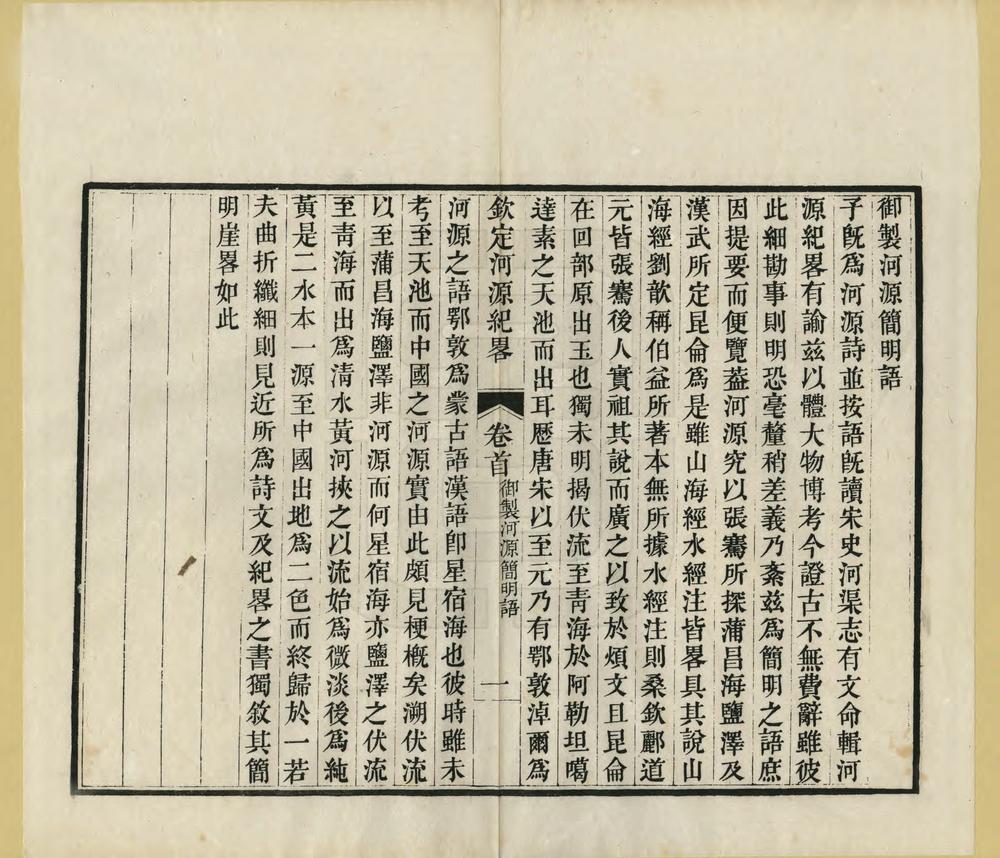 御製河源簡明語
予既爲河源詩並按語既讀宋史河渠志有文命輯河
源紀畧有諭兹以體大物博考今證古不無費辭雖彼
此細勘事則明恐毫釐稍差義乃紊兹爲簡明之語庶
因提要而便覽葢河源究以張騫所探蒲昌海鹽澤及
漢武所定昆侖爲是雖山海經水經注皆畧具其說山
海經劉歆稱伯益所著本無所據水經注則桑欽酈道
元皆張騫後人實祖其說而廣之以致於煩文且昆侖
在回部原出玉也獨未明揭伏流至青海於阿勒坦噶
達素之天池而出耳歷唐宋以至元乃有鄂敦淖爾爲
欽定河源紀畧 卷首 御製河源簡明語 一
河源之語鄂敦爲蒙古語漢語卽星宿海也彼時雖未
考至天池而中國之河源實由此頗見梗概矣溯伏流
以至蒲昌海鹽澤非河源而何星宿海亦鹽澤之伏流
至青海而出爲清水黃河挾之以流始爲微淡後爲純
黃是二水本一源至中國出地爲二色而終歸於一若
夫曲折纖細則見近所爲詩文及紀畧之書獨敘其簡
明崖畧如此